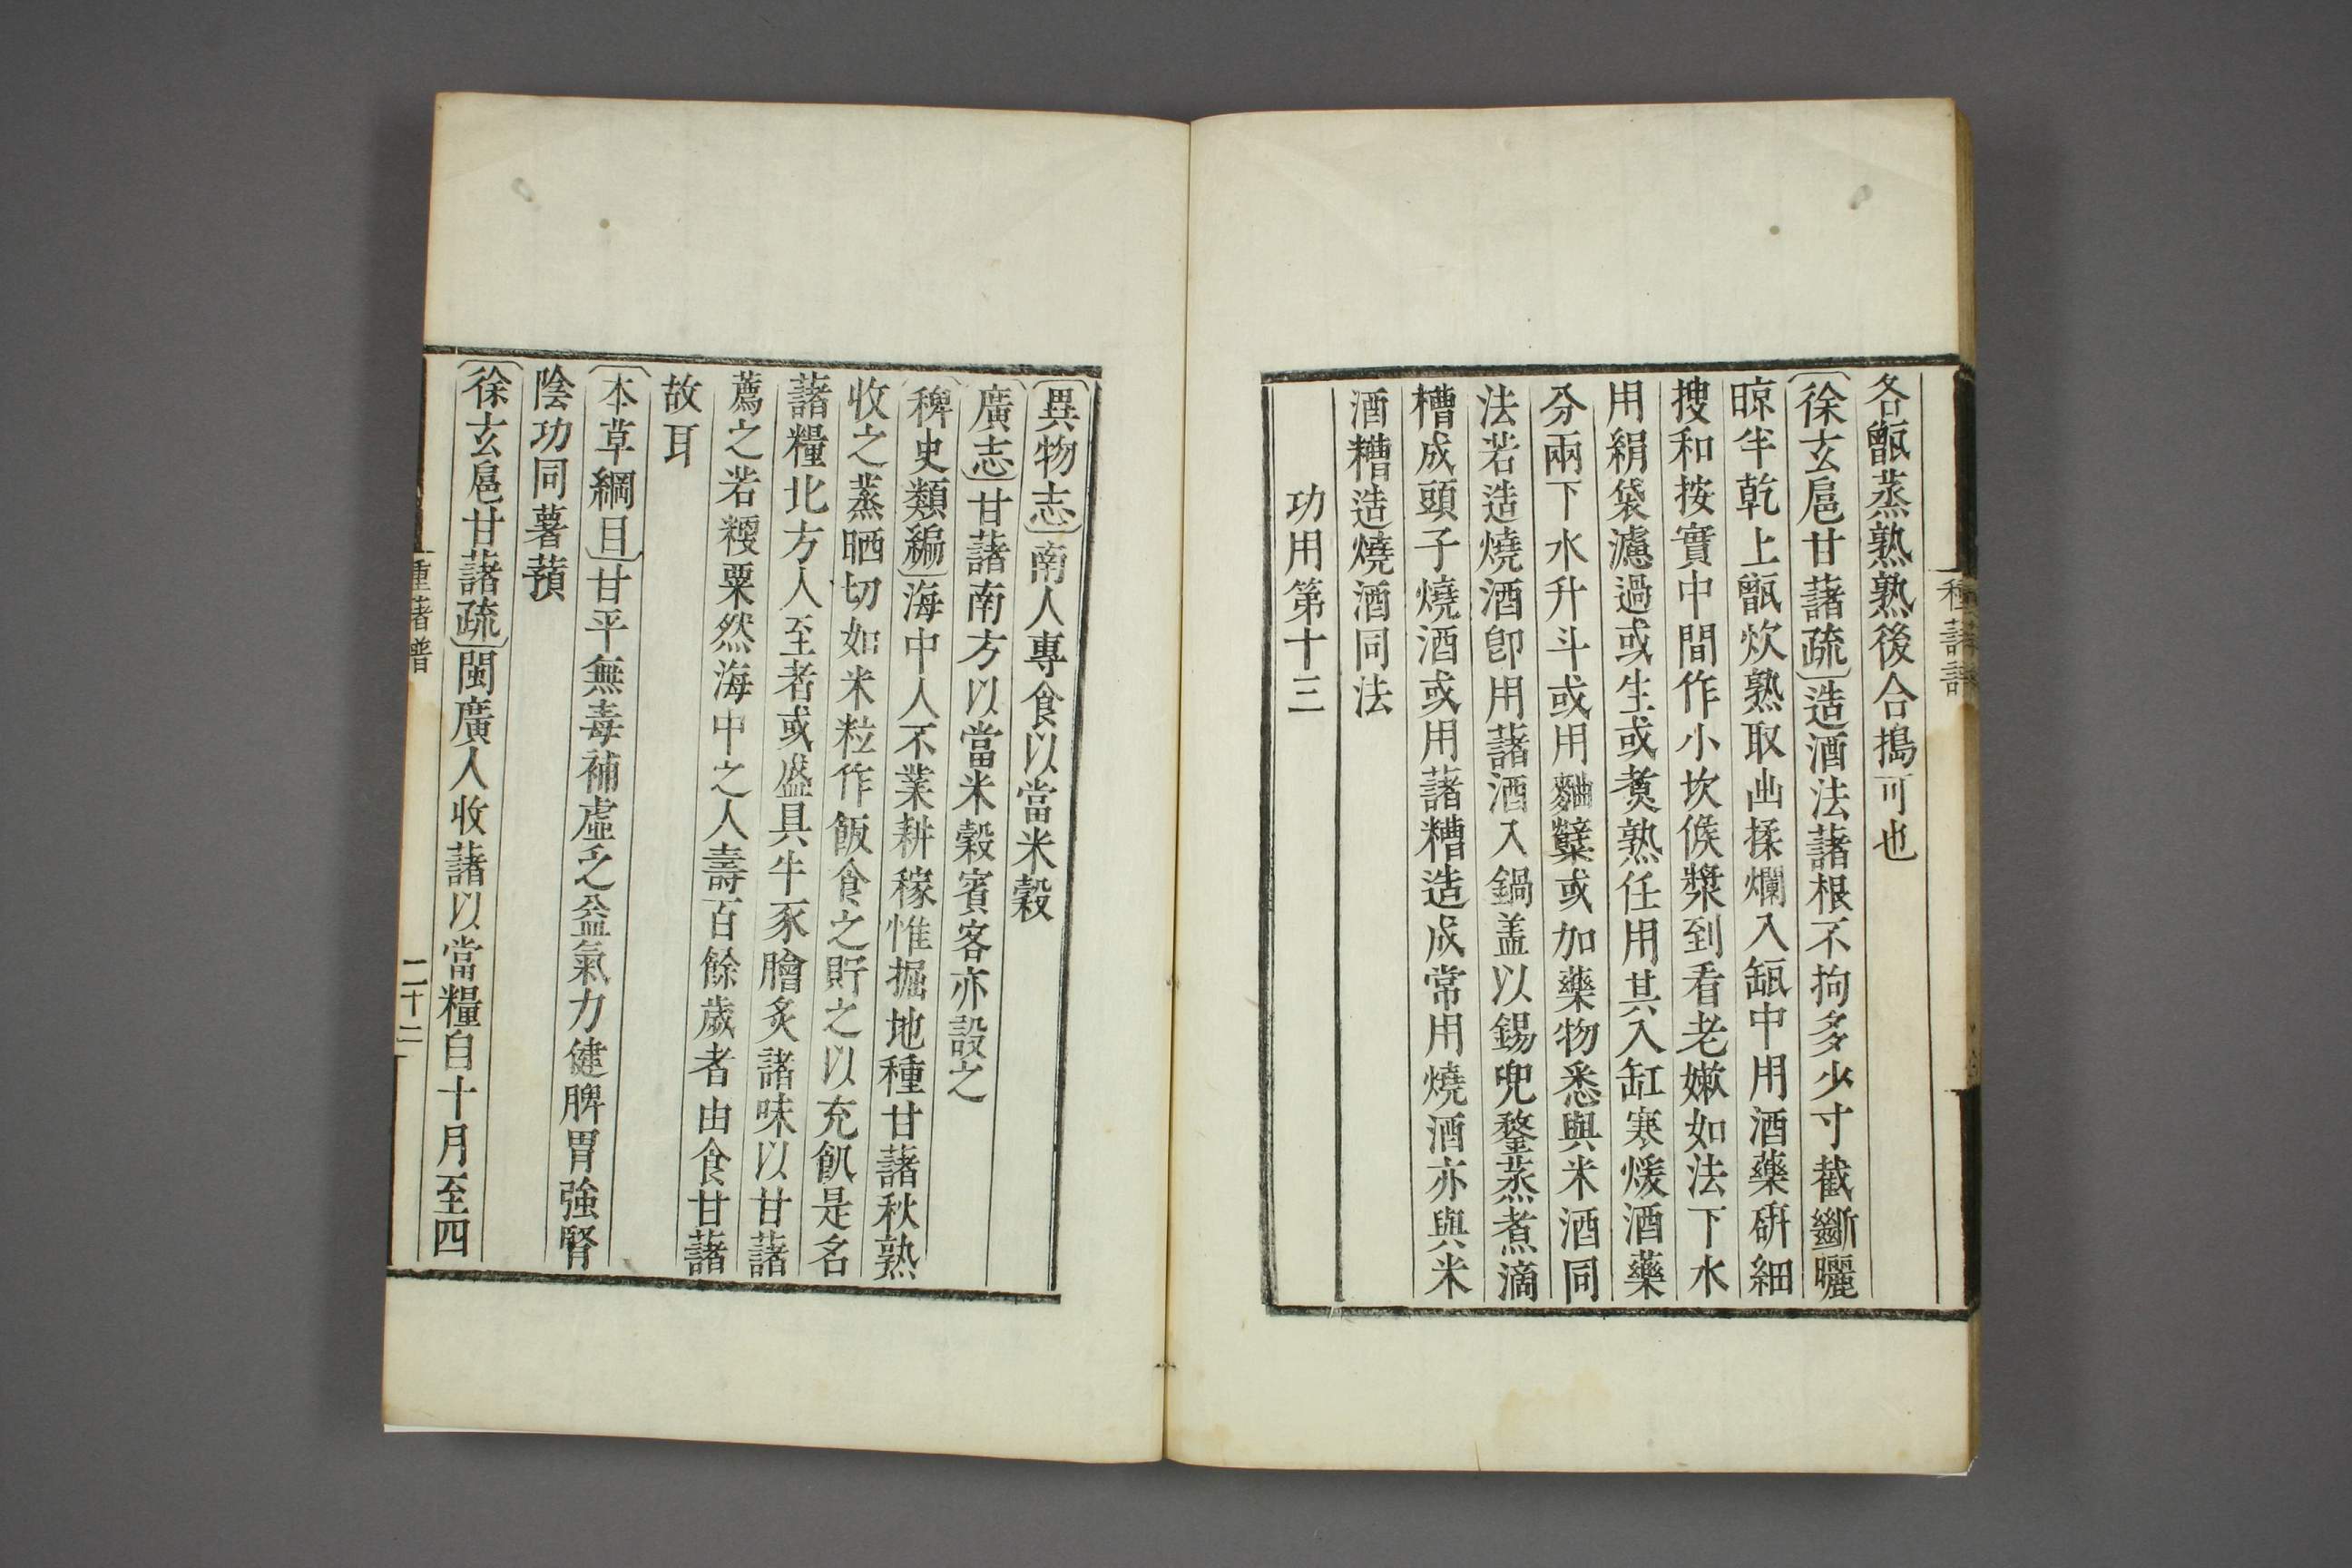 種藷譜
各甑蒸熟熟後合搗可也
徐玄扈甘藷疏造酒法藷根不拘多少寸截斷曬
晾半乾上甑炊熟取出揉爛入缻中用酒藥硏細
搜和按實中間作小坎候漿到看老嫩如法下水
用絹袋濾過或生或煑熟任用其入缸寒煖酒藥
分兩下水升斗或用麯糵或加藥物悉與米酒同
法若造燒酒卽用藷酒入鍋盖以錫兜鍪蒸煮滴
槽成頭子燒酒或用藷糟造成常用燒酒亦與米
酒糟造燒酒同法
功用第十三
異物志南人專食以當米穀
廣志甘藷南方以當米穀賓客亦設之
稗史類編海中人不業耕稼惟掘地種甘藷秋熟
收之蒸晒切如米粒作飯食之貯之以充飢是名
藷糧北方人至者或盛具牛豕膾炙諸味以甘藷
薦之若粳粟然海中之人壽百餘歲者由食甘藷
故耳
本草綱目甘平無毒補虛乏益氣力健脾胃強腎
陰功同薯蕷
徐玄扈甘藷疏閩廣人收藷以當糧自十月至四
種藷譜
二十二